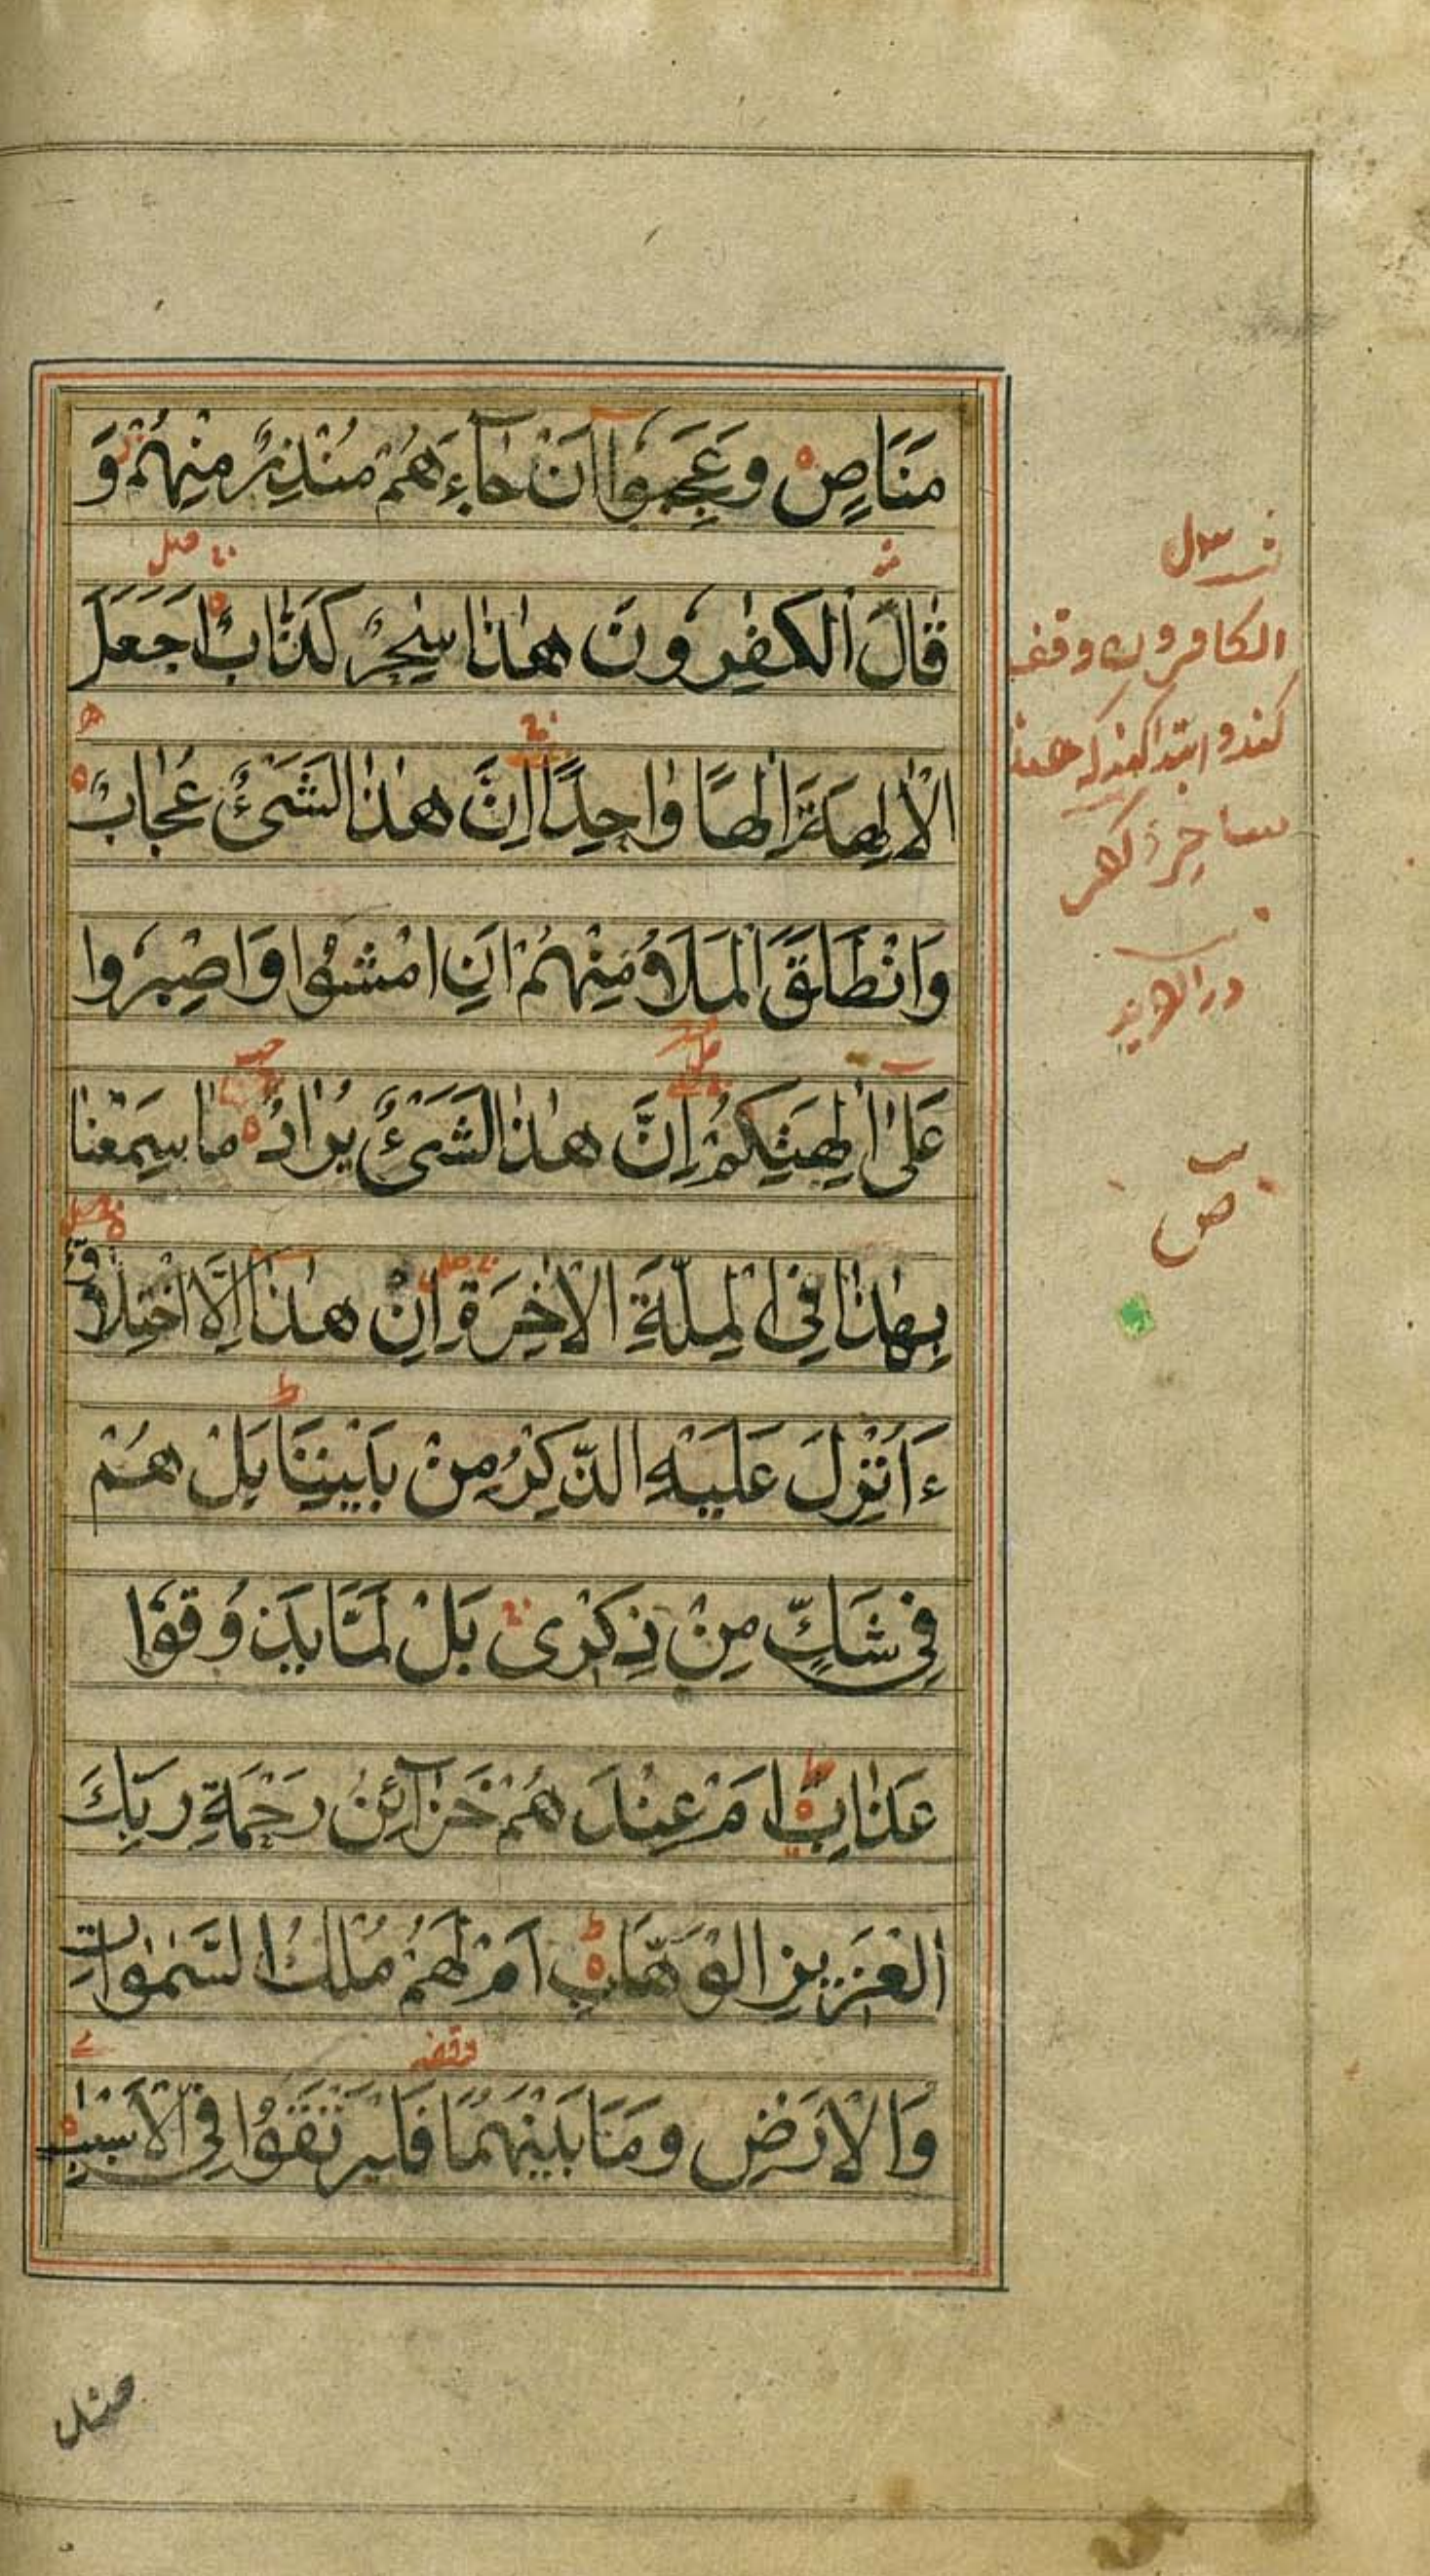 مَنَاصٍ وَعَجِبُوْٓا اَنْ جَآءَهُمْ مُنْذِرٌ مِنْهُمْ وَ
قَالَ الْكٰفِرُوْنَ هٰذَا سٰحِرٌ كَذَّابٌ اَجَعَلَ
الْاٰلِهَةَ اِلٰهًا وَاحِدًا اِنَّ هٰذَا لَشَیْءٌ عُجَابٌ
وَانْطَلَقَ الْمَلَاُ مِنْهُمْ اَنِ امْشُوْا وَاصْبِرُوْا
عَلٰی اٰلِهَتِكُمْ اِنَّ هٰذَا لَشَیْءٌ یُرَادُ مَا سَمِعْنَا
بِهٰذَا فِی الْمِلَّةِ الْاٰخِرَةِ اِنْ هٰذَا اِلَّا اخْتِلَاقٌ
ءَاُنْزِلَ عَلَیْهِ الذِّكْرُ مِنْ بَیْنِنَا بَلْ هُمْ
فِیْ شَكٍّ مِنْ ذِكْرِیْ بَلْ لَمَّا یَذُوْقُوْا
عَذَابِ اَمْ عِنْدَهُمْ خَزَآئِنُ رَحْمَةِ رَبِّكَ
الْعَزِیْزِ الْوَهَّابِ اَمْ لَهُمْ مُلْكُ السَّمٰوَاتِ
وَالْاَرْضِ وَمَا بَیْنَهُمَا فَلْیَرْتَقُوْا فِی الْاَسْبَابِ
الكافرون وقف
كنند و ابتدا كنند كه هذا
ساحر
ص